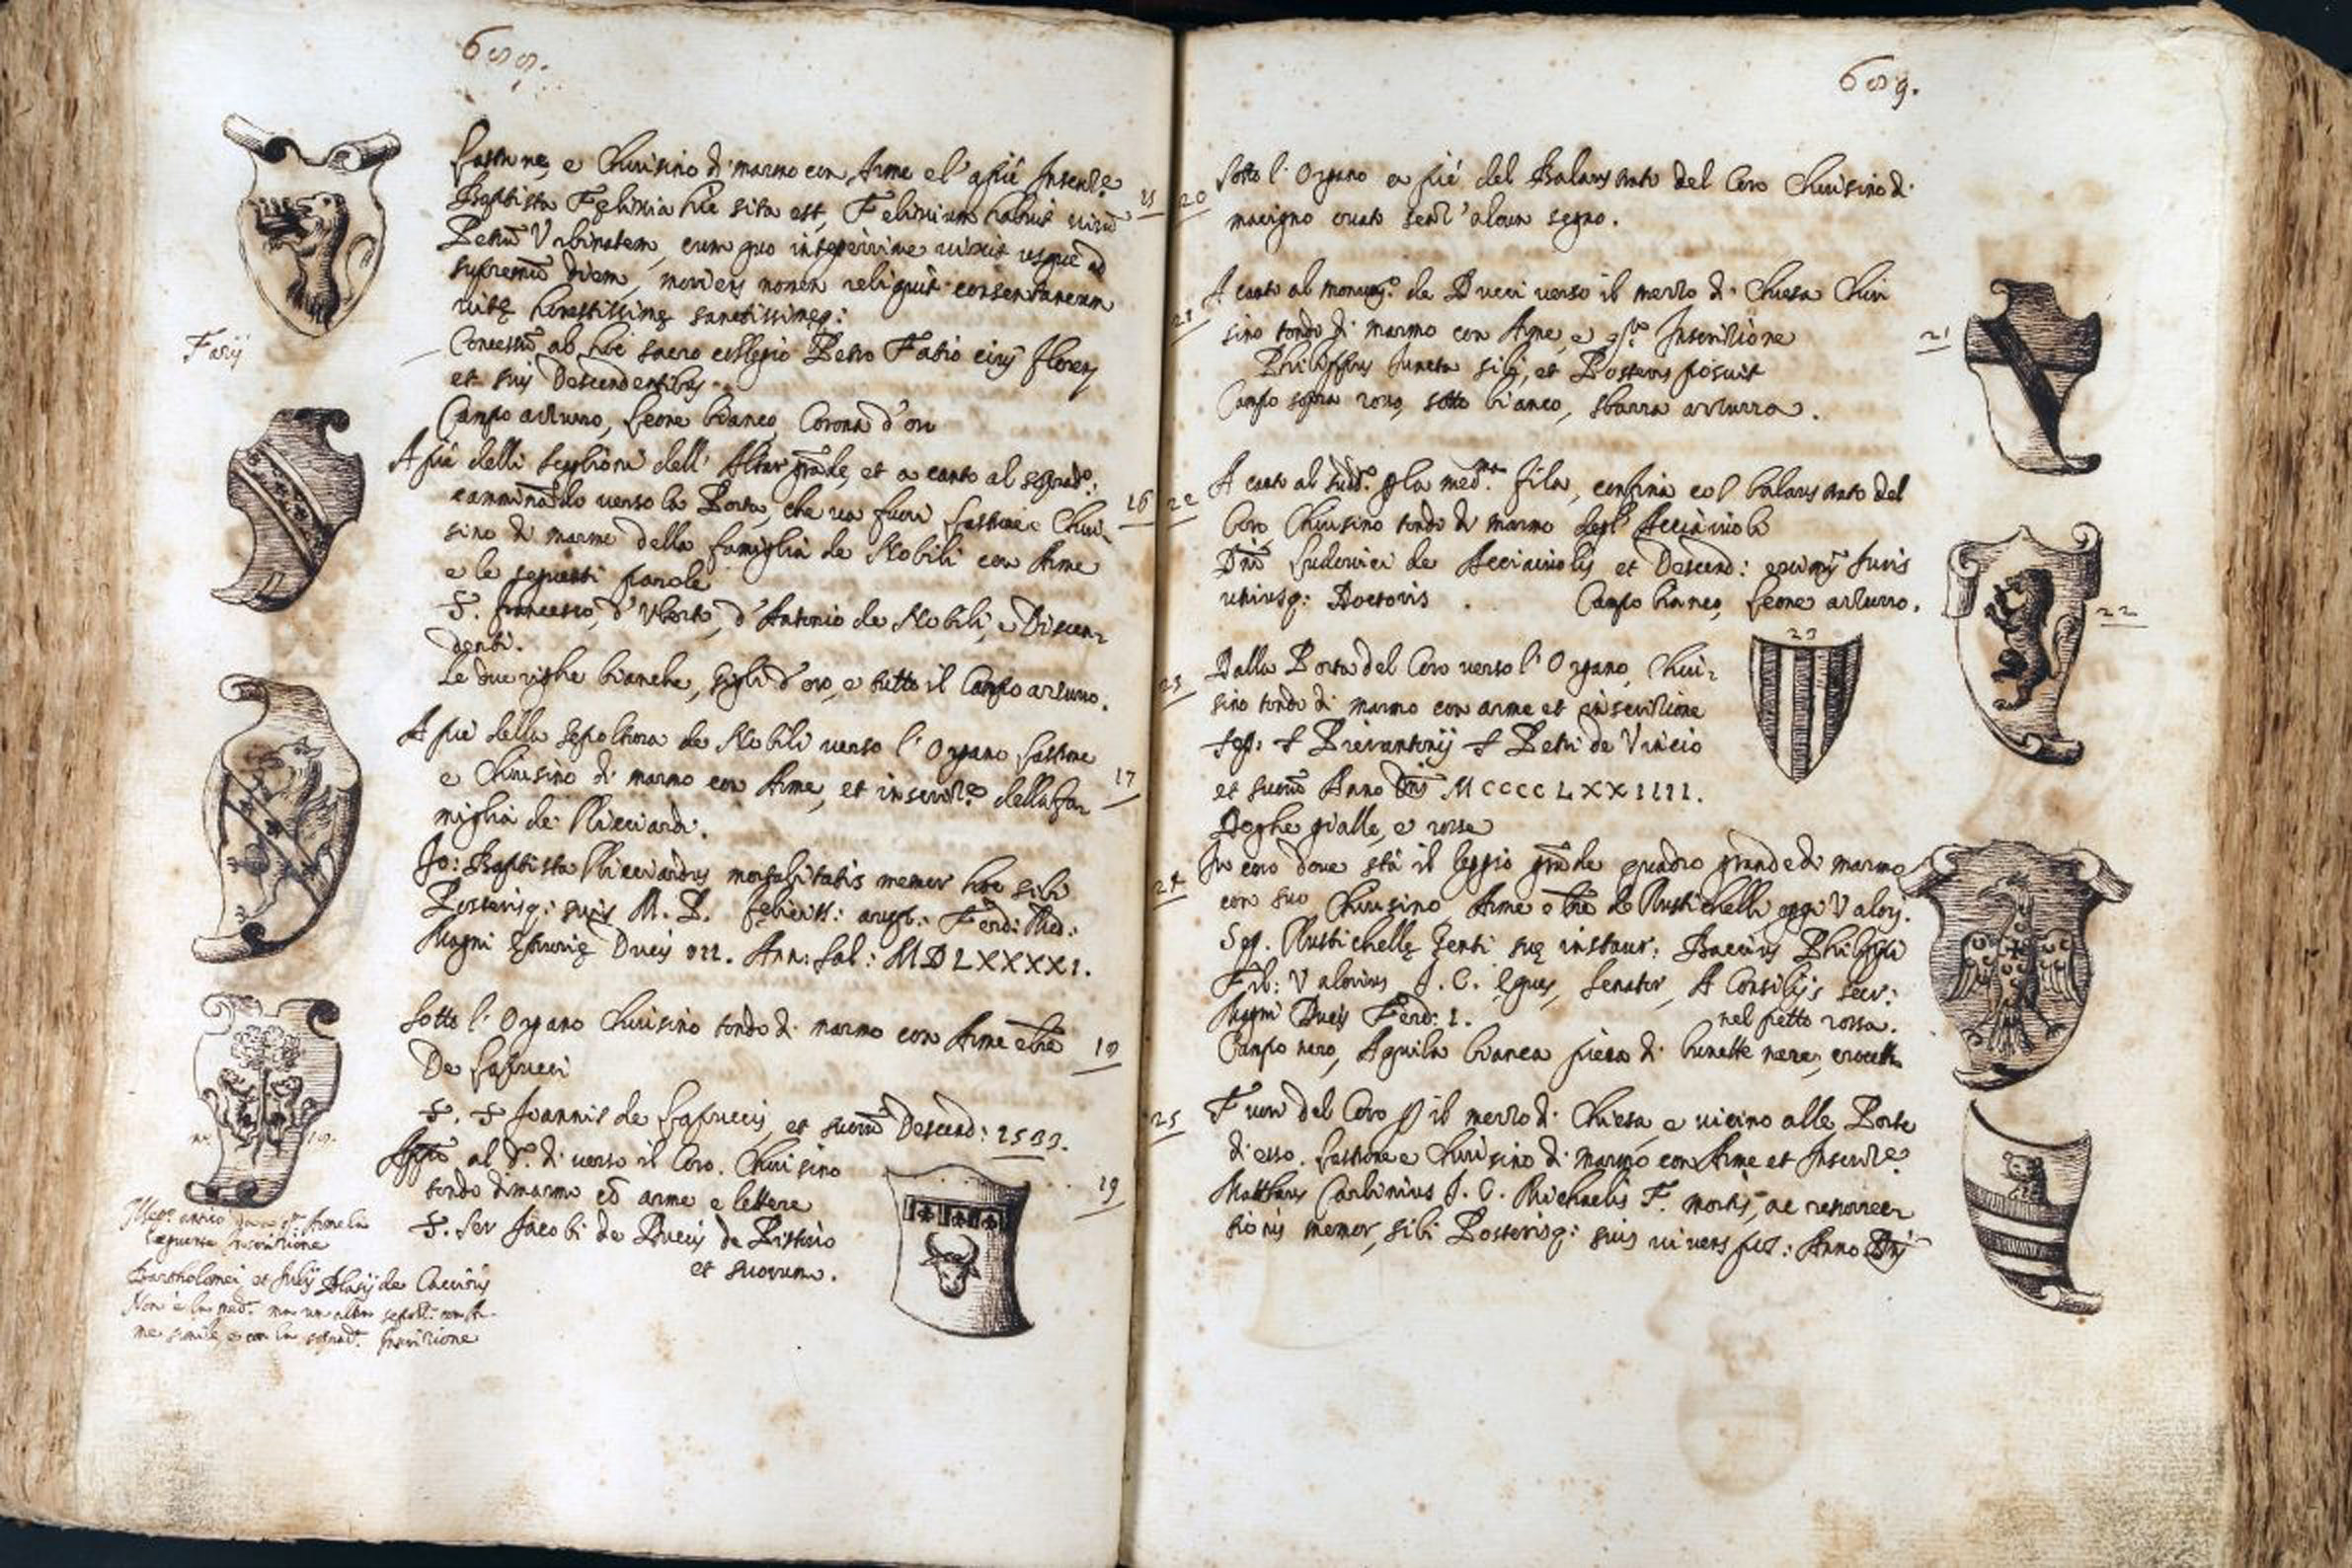 688.
Lastrone, e Chiusino di marmo con Arme e l'a piè Inscritt.e
Baptista Felinia hic sita est, Felinium habuit virū
Petrū Urbinatem, cum quo integerrime vixit usque ad
supremū diem, moriens nomen reliquit consentaneum
vitę honestissimę sanctissimęq:
Concessū ab hoc sacro collegio Petro Fatio civi Floren
et suis Descendentibus
Campo azzurro, Leone bianco, Corona d'oro
15
Fatij
A piè delli scaglioni dell' Altar grāde, et a canto al sopradº:
camminādo verso la Porta, che va fuori lastrone Chiu-
sino di marmo della famiglia de Nobili con Arme
e le seguenti parole
S. Francesco, d'Uberto, d'Antonio de Nobili, e Discen-
denti.
Le due righe bianche, gigli d'oro, e tutto il Campo azzurro.
16
A piè della sepoltura de Nobili verso l'Organo lastrone
e Chiusino di marmo con Arme, et inscritt.e della fa-
miglia de Ricciardi.
Jo: Baptista Ricciardus mortalitatis memor hoc sibi
Posterisq: suis M. P. feliciss: Ferd: Med:
Magni Etrurię Ducis III. Ann: Sal: MDLXXXXI.
17
Sotto l'Organo Chiusino tondo di marmo con Arme
De Lapucci
S. S Joannis de Lapuccis, et suorū Descend: 1533.
18
al dº. di verso il Coro. Chiusino
tondo di marmo cō arme e lettere
S. Ser Jacobi de Puccis de Pistorio
et suorum.
19
Inscrittione
Bartholomei et Julij Blasij de
Non è la medª. ma un altra sepolt: con Ar-
me simile, e con la sopradª. Inscrittione
689.
20
Sotto l'Organo a piè del Balaustrato del Coro Chiusino di
macigno ovato senz'alcun segno.
21
A canto al de Pucci verso il mezzo di Chiesa Chiu
sino tondo di marmo con Arme, e Inscrittione
Philippus sibi, et Posteris posuit
Campo sopra rosso, sotto bianco, sbarra azzurra.
21
22
A canto al sudº. p la medma. fila, confina col balaustrato del
Coro Chiusino tondo di marmo degl' Acciaiuoli
Dni Ludovici de Acciaiuolis et Descend: eximij Juris
utriusq: Doctoris. Campo bianco, Leone azzurro.
22
23
Dalla Porta del Coro verso l'Organo, Chiu-
sino tondo di marmo con arme et inscrittione
Sep: S Pierantonij S Petri de Vincio
et suorū Anno Dni MCCCCLXXIIII.
Doghe gialle, e rosse
23
24
In coro dove stà il leggio grāde quadro grande di marmo
con suo Chiusino, Arme de Rustichelli oggi Valori.
Sep. Rustichellę genti suę instaur: Baccius Philippi
Fil: Valorius J. C. Eques, Senator, A Consilijs secr:
Magni Ducis Ferd: I. nel petto rossa.
Campo nero, Aquila bianca piena di lunette nere, crocetta
25
Fuori del Coro p il mezzo di Chiesa, e vicino alle Porte
di esso. Lastrone e Chiusino di marmo con Arme et Inscritt.e
Matthæus Carbinius J. C. Michaelis F. mortis, ac resurrec
tionis memor, sibi Posterisq: suis vivens fec: Anno Dni